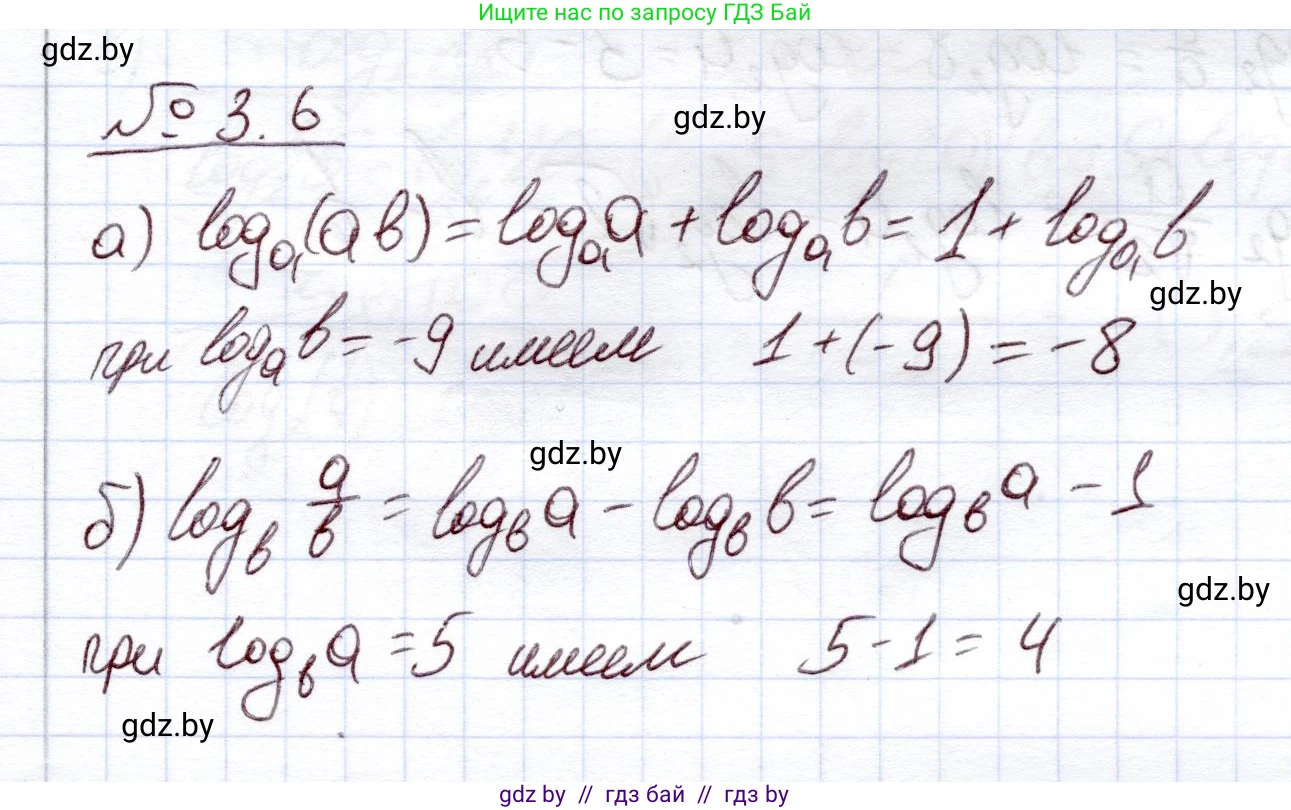 Ищите нас по запросу ГДЗ Бай
gdz.by
№ 3.6
gdz.by
а) logₐ(ab) = logₐa + logₐb = 1 + logₐb
gdz.by
при logₐb = -9 имеем 1 + (-9) = -8
gdz.by
б) log_b a/b = log_b a - log_b b = log_b a - 1
gdz.by
при log_b a = 5 имеем 5 - 1 = 4
gdz.by
gdz by // гдз бай // гдз by